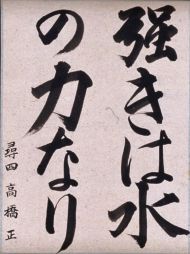 強きは水
の力なり
尋四 高橋正